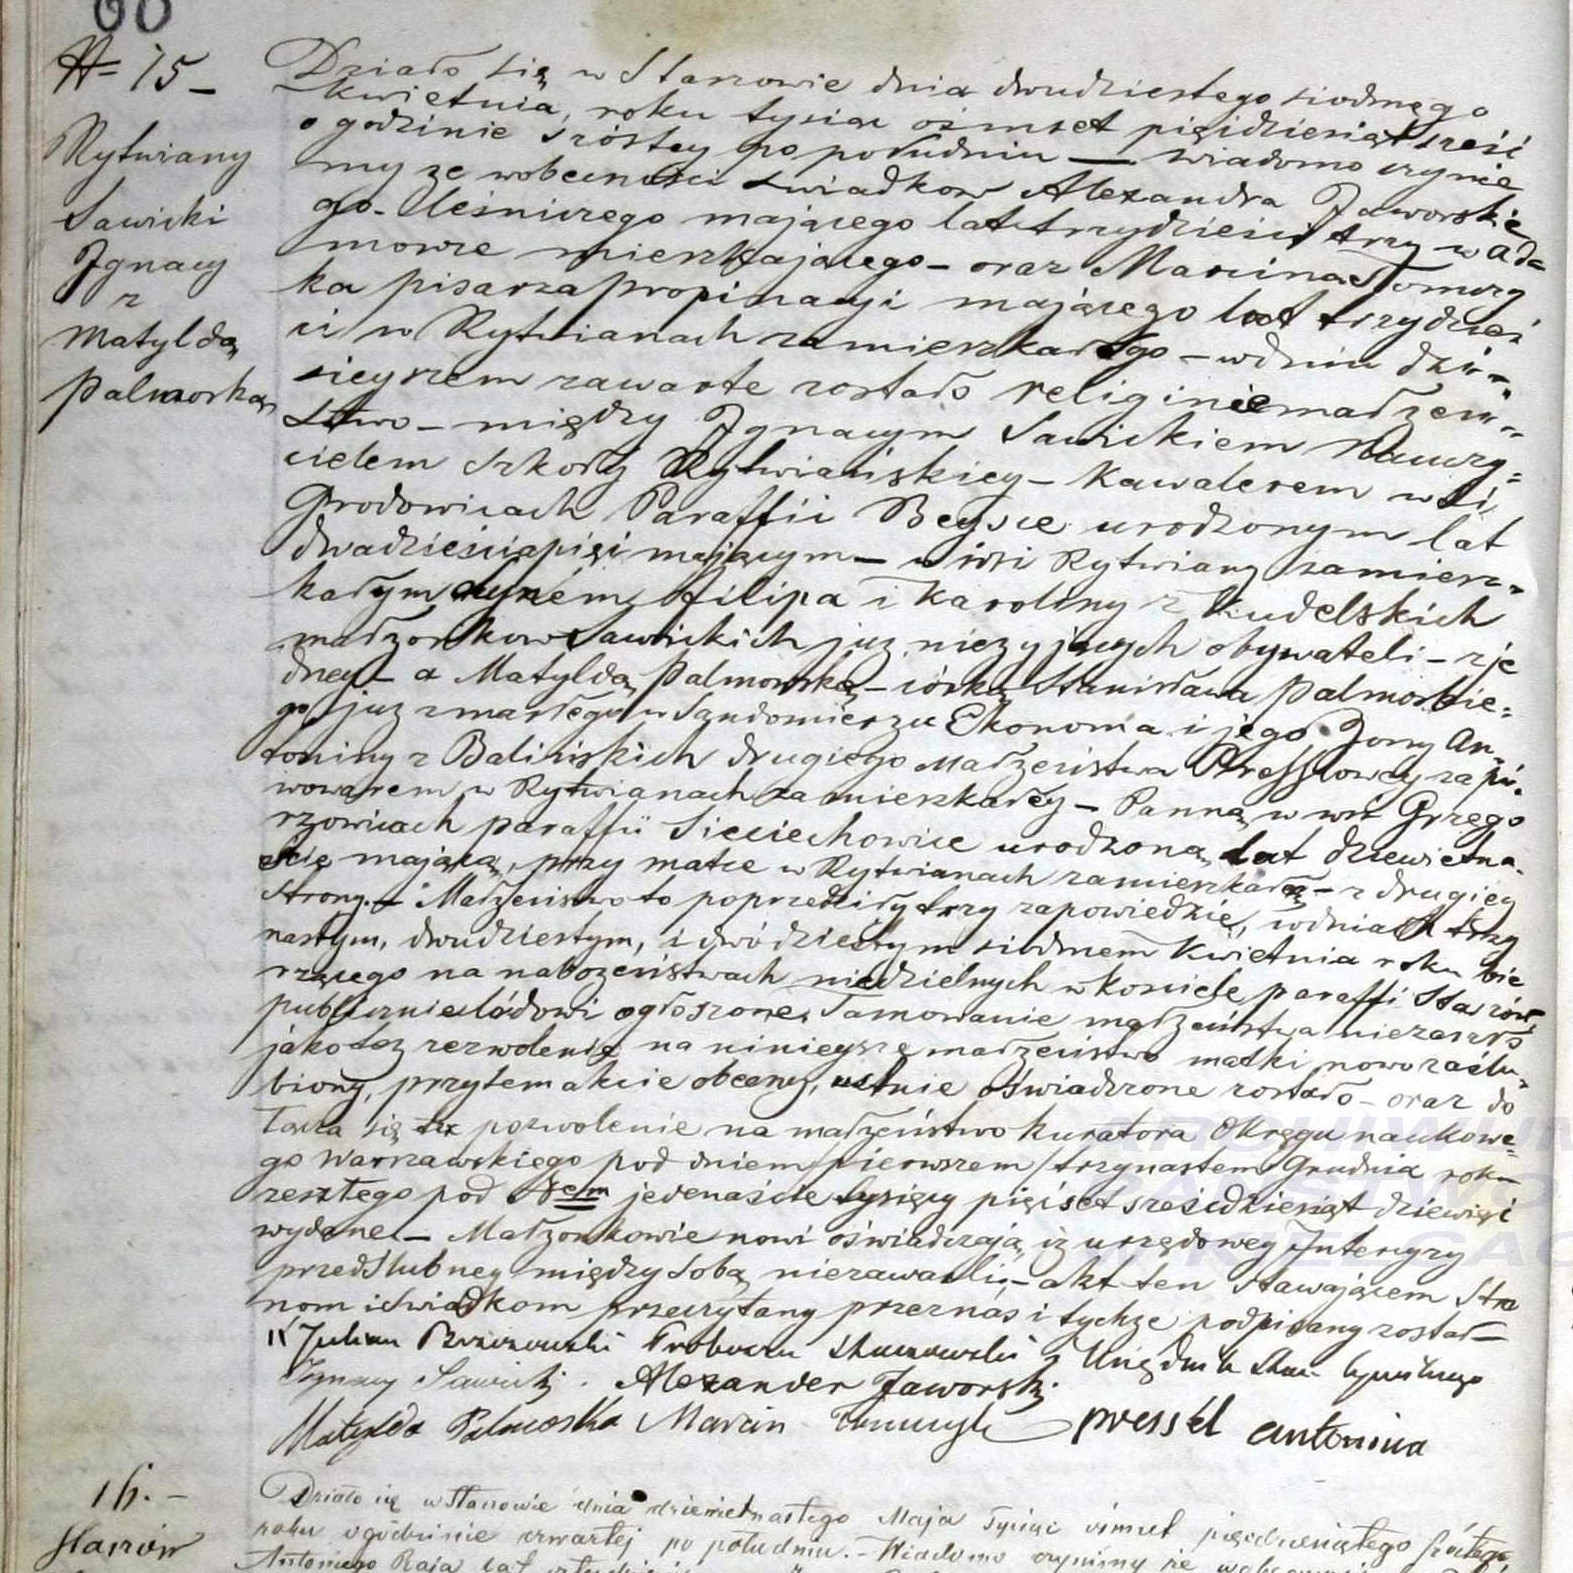 60
№ 15 –
Rytwiany
Sawicki
Ignacy
z
Matyldą
Palmoską
Działo się w Staszowie dnia dwudziestego siodmego
kwietnia, roku tysiąc ośmset pięidziesiąt sześć
o godzinie szóstey po południu — wiadomo czynie
my że wobecności swiadkow Alexandra Jaworskie
go. Leśniczego mającego lat trzydzieści trzy w Ada
mowce mieszkającego – oraz Marcina Tomczy
ka pisarza propinacyi mającego lat trzydzieś
ci w Rytwianach zamieszkałego – w dniu dzi-
sieyszem zawarte zostało religinie małżeń-
stwo – między Ignacym Sawickiem Nauczy=
cielem szkoły Rytwiańskiey – Kawalerem w wsi
Grodowicach Paraffii Beysce urodzonym lat
dwadzieściapięć mającym – w wsi Rytwiany zamiesz=
kałym synem Filipa i Karoliny z Kudelskich
małżonkow Sawickich juz nieżyjących obywateli – z je
dney – a Matyldą Palmoską – córką Stanisława Palmoskie=
go już zmarłego w Sandomierzu Ekonoma i jego Żony An-
toniny z Balińskich drugiego Małżeństwa Pressłowey za pi-
wowarem w Rytwianach zamieszkałey – Panną w wsi Grzego
rzowicach paraffii Sieciechowice urodzoną lat dziewietna-
ście mającą, przy matce w Rytwianach zamieszkałą – z drugiey
strony. – Małżeństwo to poprzedziły trzy zapowiedzie, w dniach trzy
nastym, dwudziestym, i dwódziestym siedmem Kwietnia roku bie
rzącego na nabożeństwach niedzielnych w kosciele paraffi Staszów
publicznie lódowi ogłoszone. Tamowanie małżeństwa niezaszło
jako też zezwolenie na ninieysze małżeństwo matki nowo zaślu-
biony, przytem akcie obecney, ustnie oświadczone zostało – oraz do
łącza się pozwolenie na małżeństwo Kuratora Okręgu naukowe=
go Warszawskiego pod dniem pierwszem / trzynastem Grudnia roku
zeszłego pod Nem jedenaście tysięcy pięćset sześćdziesiąt dziewięć
wydane. – Małżonkowie nowi oświadczają, iż urzędowey Intercyzy
przedślubney między sobą niezawarli. – akt ten stawającem Stro
nom i świadkom przeczytany przez nas i tychże podpisany został –
Julian Brzozowski Proboszcz Staszowski Urzędnik Stanu Cywilnego
Ignacy Sawicki. Alexander Jaworski
Matylda Palmoska Marcin Tomczyk pressel antonina
16. –
Staszów
Działo się w Staszowie dnia dziewietnastego Maja Tysiąc ośmset pięćdziesiątego szóstego
roku o godzinie czwartej po południu. – Wiadomo czynimy że w obecności
Antoniego Raja lat